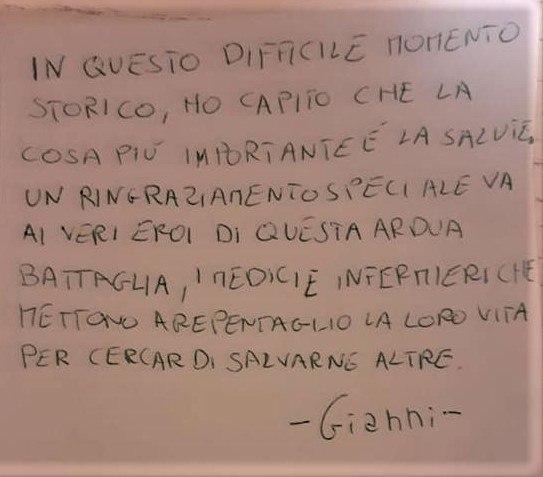 IN QUESTO DIFFICILE MOMENTO
STORICO, HO CAPITO CHE LA
COSA PIÚ IMPORTANTE É LA SALUTE.
UN RINGRAZIAMENTO SPECIALE VA
AI VERI EROI DI QUESTA ARDUA
BATTAGLIA, I MEDICI E INFERMIERI CHE
METTONO A REPENTAGLIO LA LORO VITA
PER CERCAR DI SALVARNE ALTRE.
-Gianni-